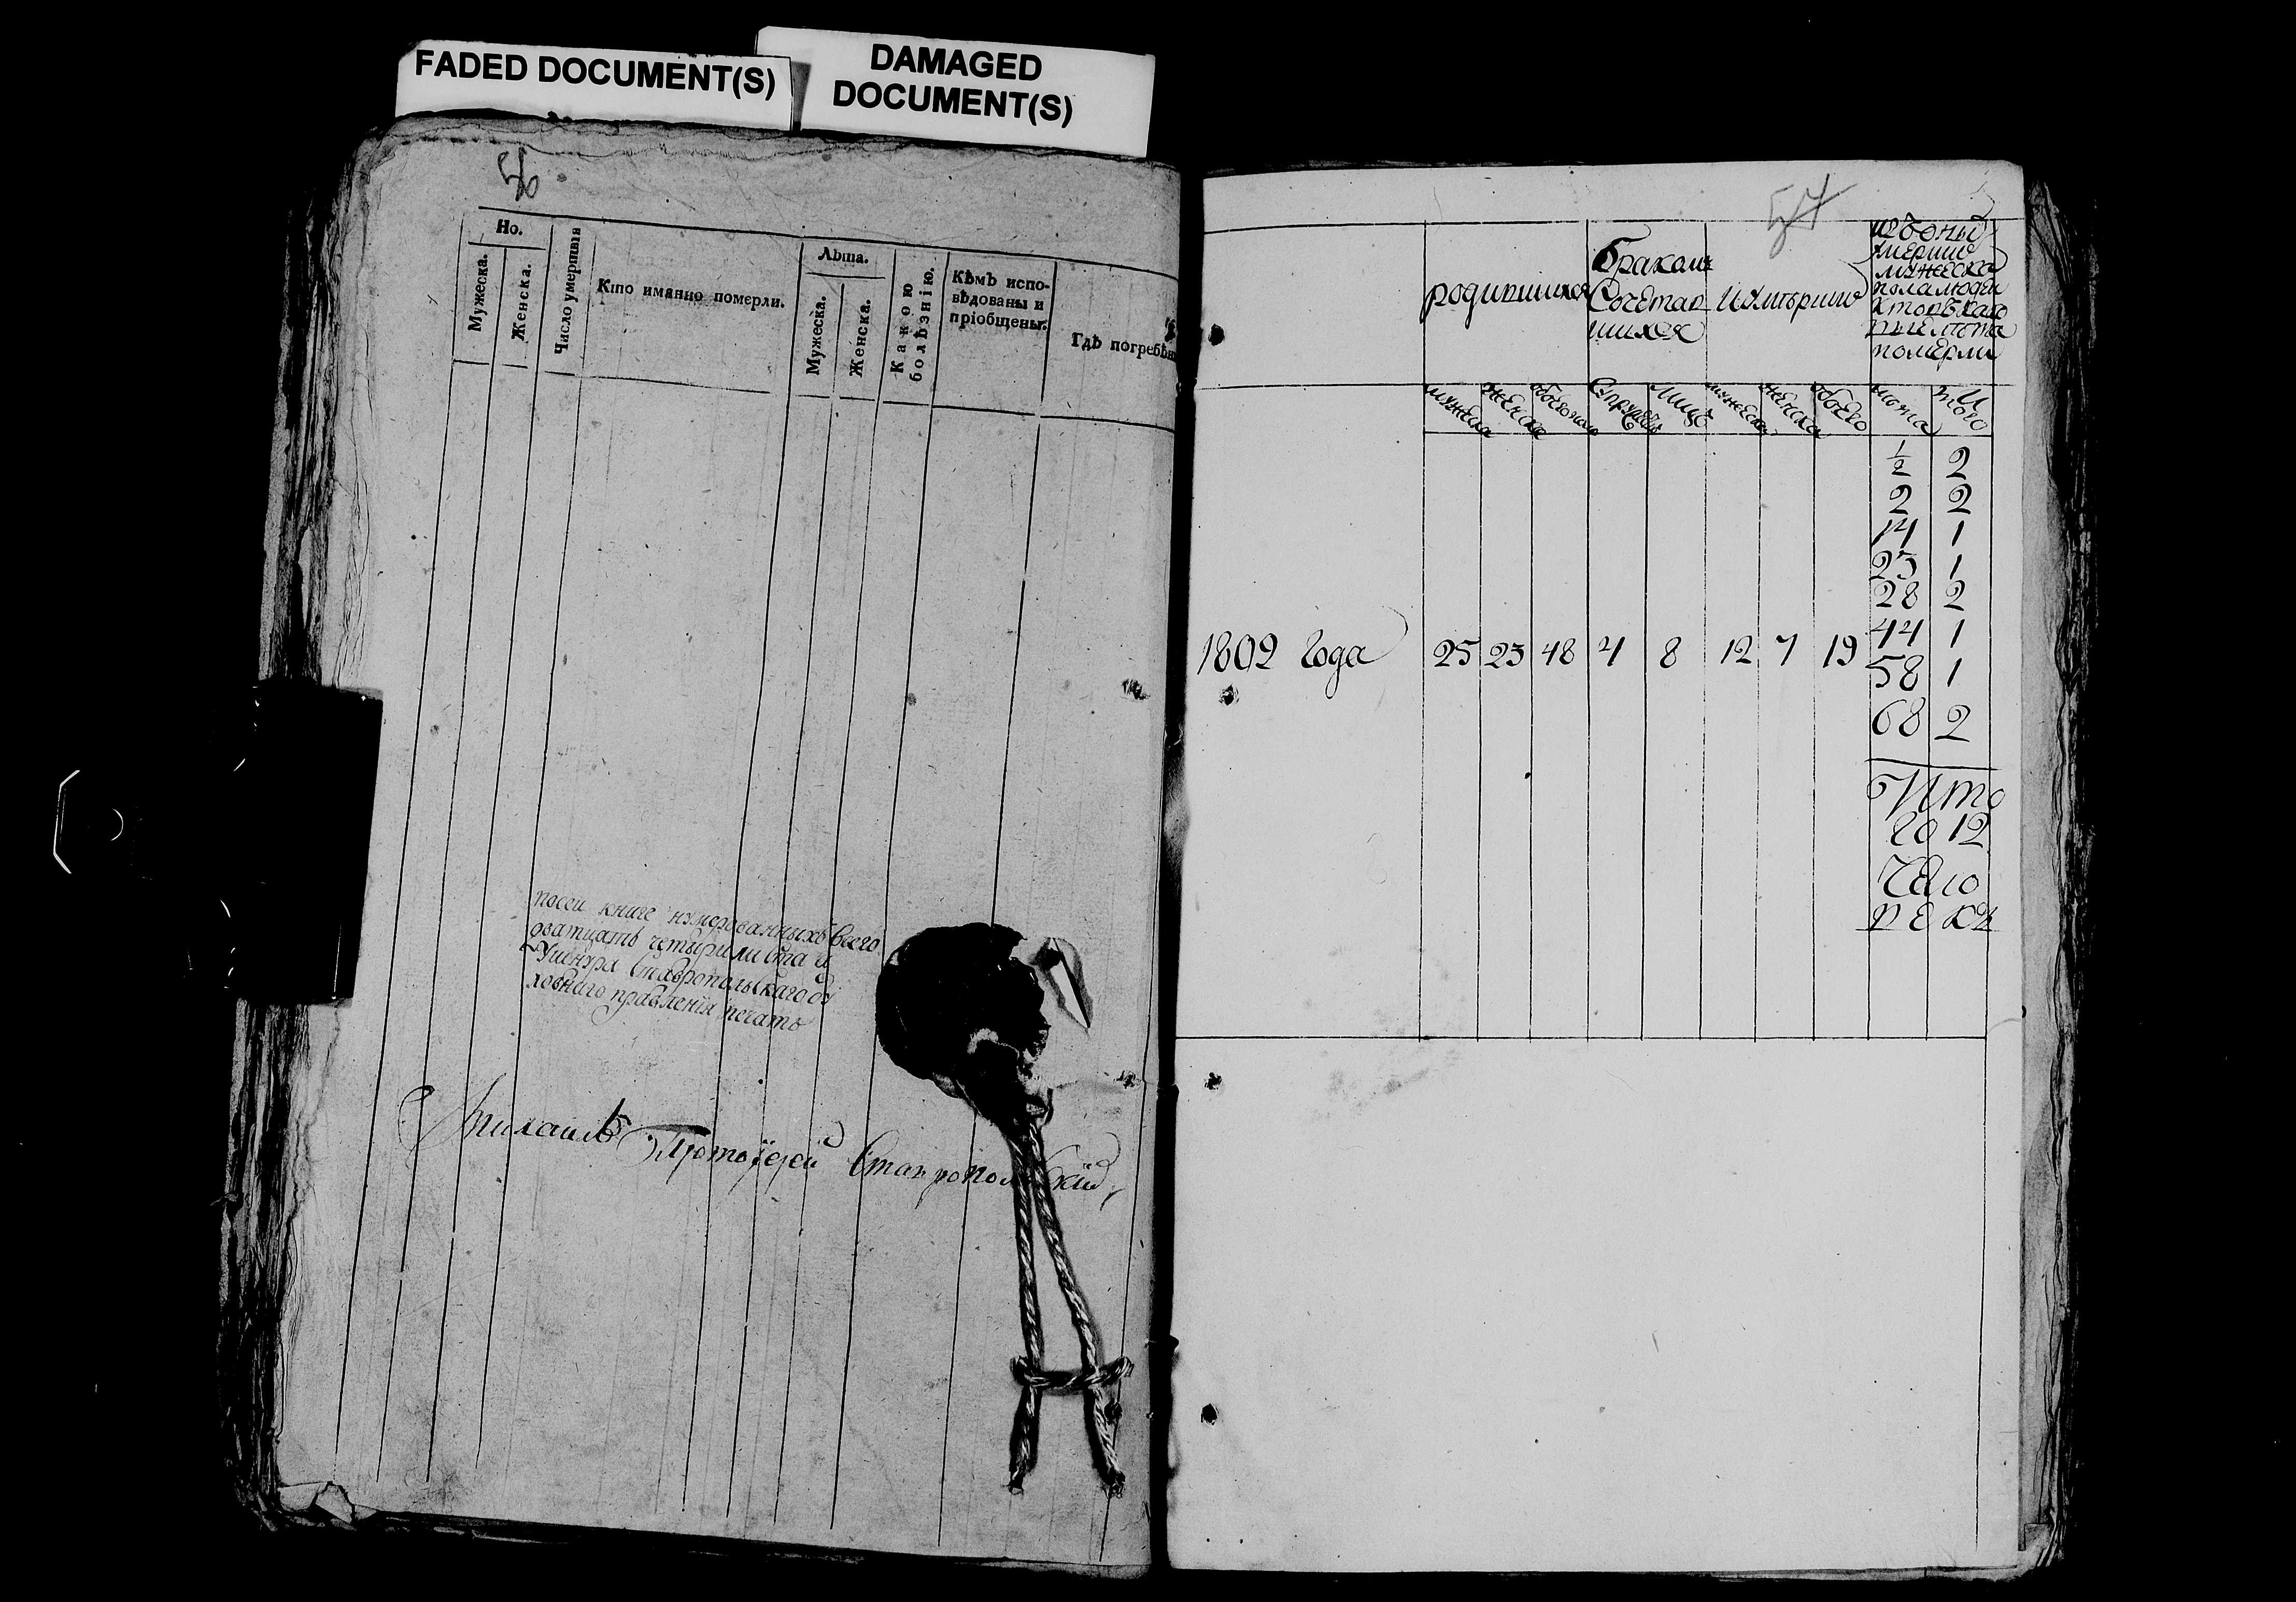 FADED DOCUMENT(S)
DAMAGED
DOCUMENT(S)
56
Но.
Мужеска.
Женска.
Число умертвія
Кто имянно померли.
Лѣта.
Мужеска.
Женска.
Какою
болѣзнію.
Кѣмъ испо-
вѣдованы и
пріобщены.
Гдѣ погребены
посеи книге нумерованныхъ всего
дватцать четыри листа и
Ушнура Ставропольскаго ду
ховнаго правленія печать
Михаилъ Протоїерей Ставропольскій
57
родившихся
Бракомъ
Сочетав
шихся
И Умѣрших
изъ оныхъ
умерших
мужеска
пола людеи
померли
мужеска
женска
обоего пола
Супружествъ
Лицъ
мужеска
женска
обоего
лѣта
И
того
1/2 2
2 2
14 1
23 1
28 2
44 1
1802 года 25 23 48 4 8 12 7 19
58 1
68 2
Ито
го 12
Чело
векъ